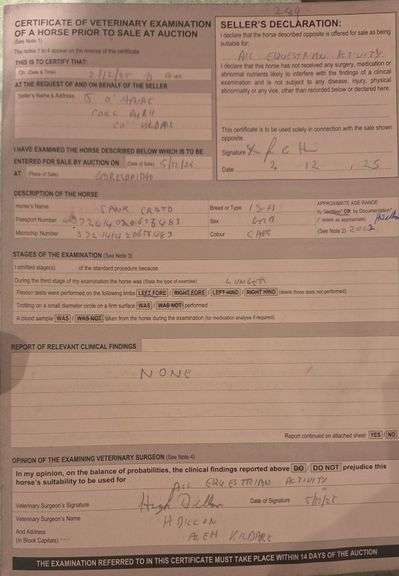 CERTIFICATE OF VETERINARY EXAMINATION
OF A HORSE PRIOR TO SALE AT AUCTION
(See Note 1)
THIS IS TO CERTIFY THAT:
On (Date & Time)
AT THE REQUEST OF AND ON BEHALF OF THE SELLER
Seller's Name & Address
I HAVE EXAMINED THE HORSE DESCRIBED BELOW WHICH IS TO BE
ENTERED FOR SALE BY AUCTION ON (Date of Sale) 5/12/25
AT (Place of Sale) GORESBRIDGE
SELLER'S DECLARATION:
I declare that the horse described opposite is offered for sale as being
suitable for:
ALL EQUESTRIAN ACTIVITY
I declare that this horse has not received any surgery, medication or
abnormal nutrients likely to interfere with the findings of a clinical
examination and is not subject to any disease, injury, physical
abnormality or any vice, other than recorded below or declared here.
This certificate is to be used solely in connection with the sale shown
opposite.
Signature
Date 2 12 25
DESCRIPTION OF THE HORSE
Horse's Name
Breed or Type ISH
APPROXIMATE AGE RANGE
Passport Number
Sex
Microchip Number
Colour CHES
(See Note 2)
STAGES OF THE EXAMINATION (See Note 3)
I omitted stage(s) of the standard procedure because
During the third stage of my examination the horse was (State the type of exercise) LUNGED
Flexion tests were performed on the following limbs LEFT FORE / RIGHT FORE / LEFT HIND / RIGHT HIND
Trotting on a small diameter circle on a firm surface WAS / WAS NOT performed
A blood sample WAS / WAS NOT taken from the horse during the examination (for medication analysis if required)
REPORT OF RELEVANT CLINICAL FINDINGS
NONE
Report continued on attached sheet YES / NO
OPINION OF THE EXAMINING VETERINARY SURGEON (See Note 4)
In my opinion, on the balance of probabilities, the clinical findings reported above DO / DO NOT prejudice this
horse's suitability to be used for ALL EQUESTRIAN ACTIVITY
Veterinary Surgeon's Signature Hugh Dillon Date of Signature 5/12/25
Veterinary Surgeon's Name H DILLON
And Address
(In Block Capitals) ATHY KILDARE
THE EXAMINATION REFERRED TO IN THIS CERTIFICATE MUST TAKE PLACE WITHIN 14 DAYS OF THE AUCTION